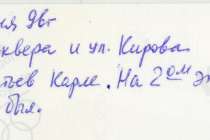 ня 9вг
квера и ул. Кирова
тьев Карм. На 2ом э
был.